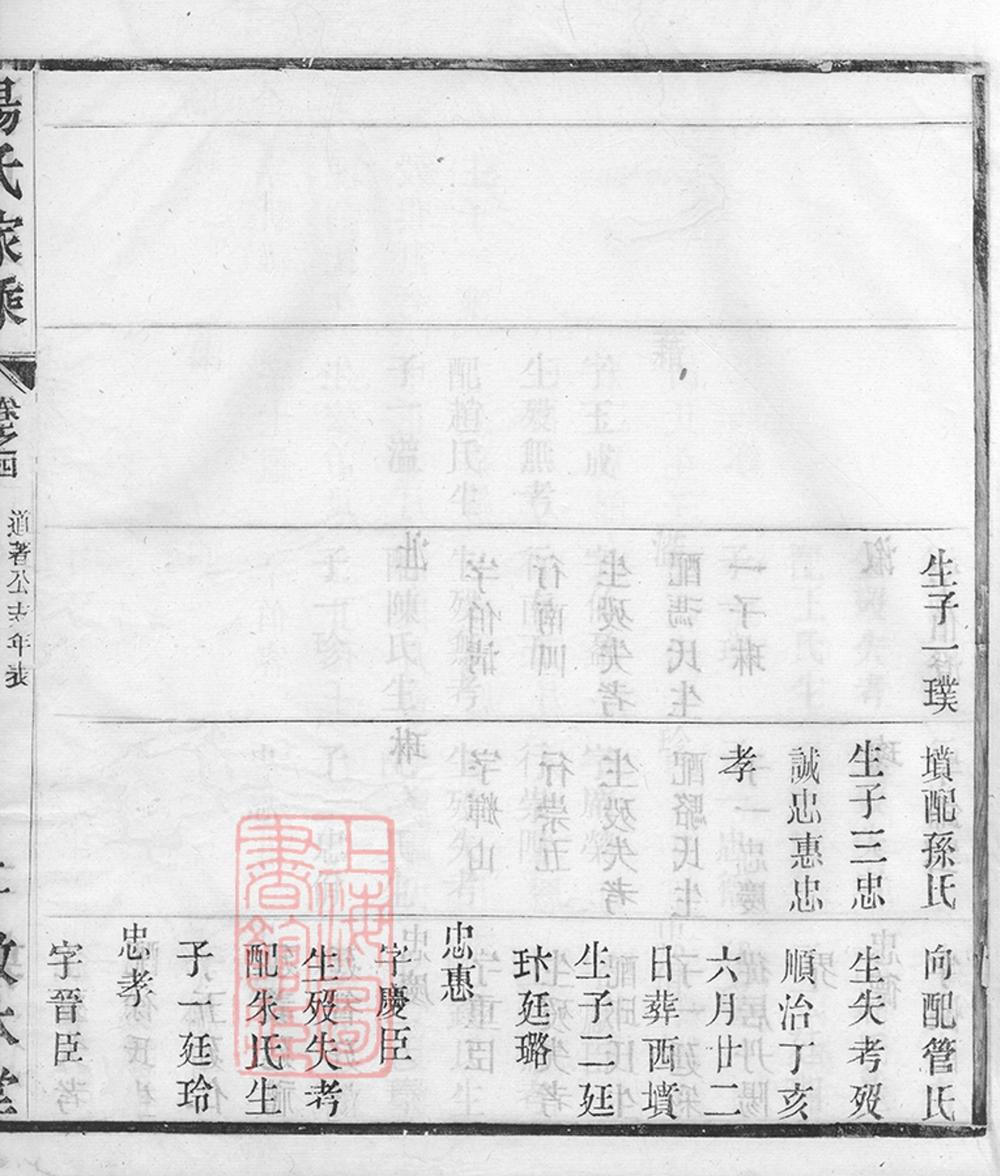 生子一璞
墳配孫氏
生子三忠
誠忠惠忠
孝
向配管氏
生失考歿
順治丁亥
六月廿二
日葬西墳
生子二廷
廷璐
忠惠
字慶臣
生歿失考
配朱氏生
子一廷玲
忠孝
字晉臣
楊氏家乘
卷之四
上海圖書館藏